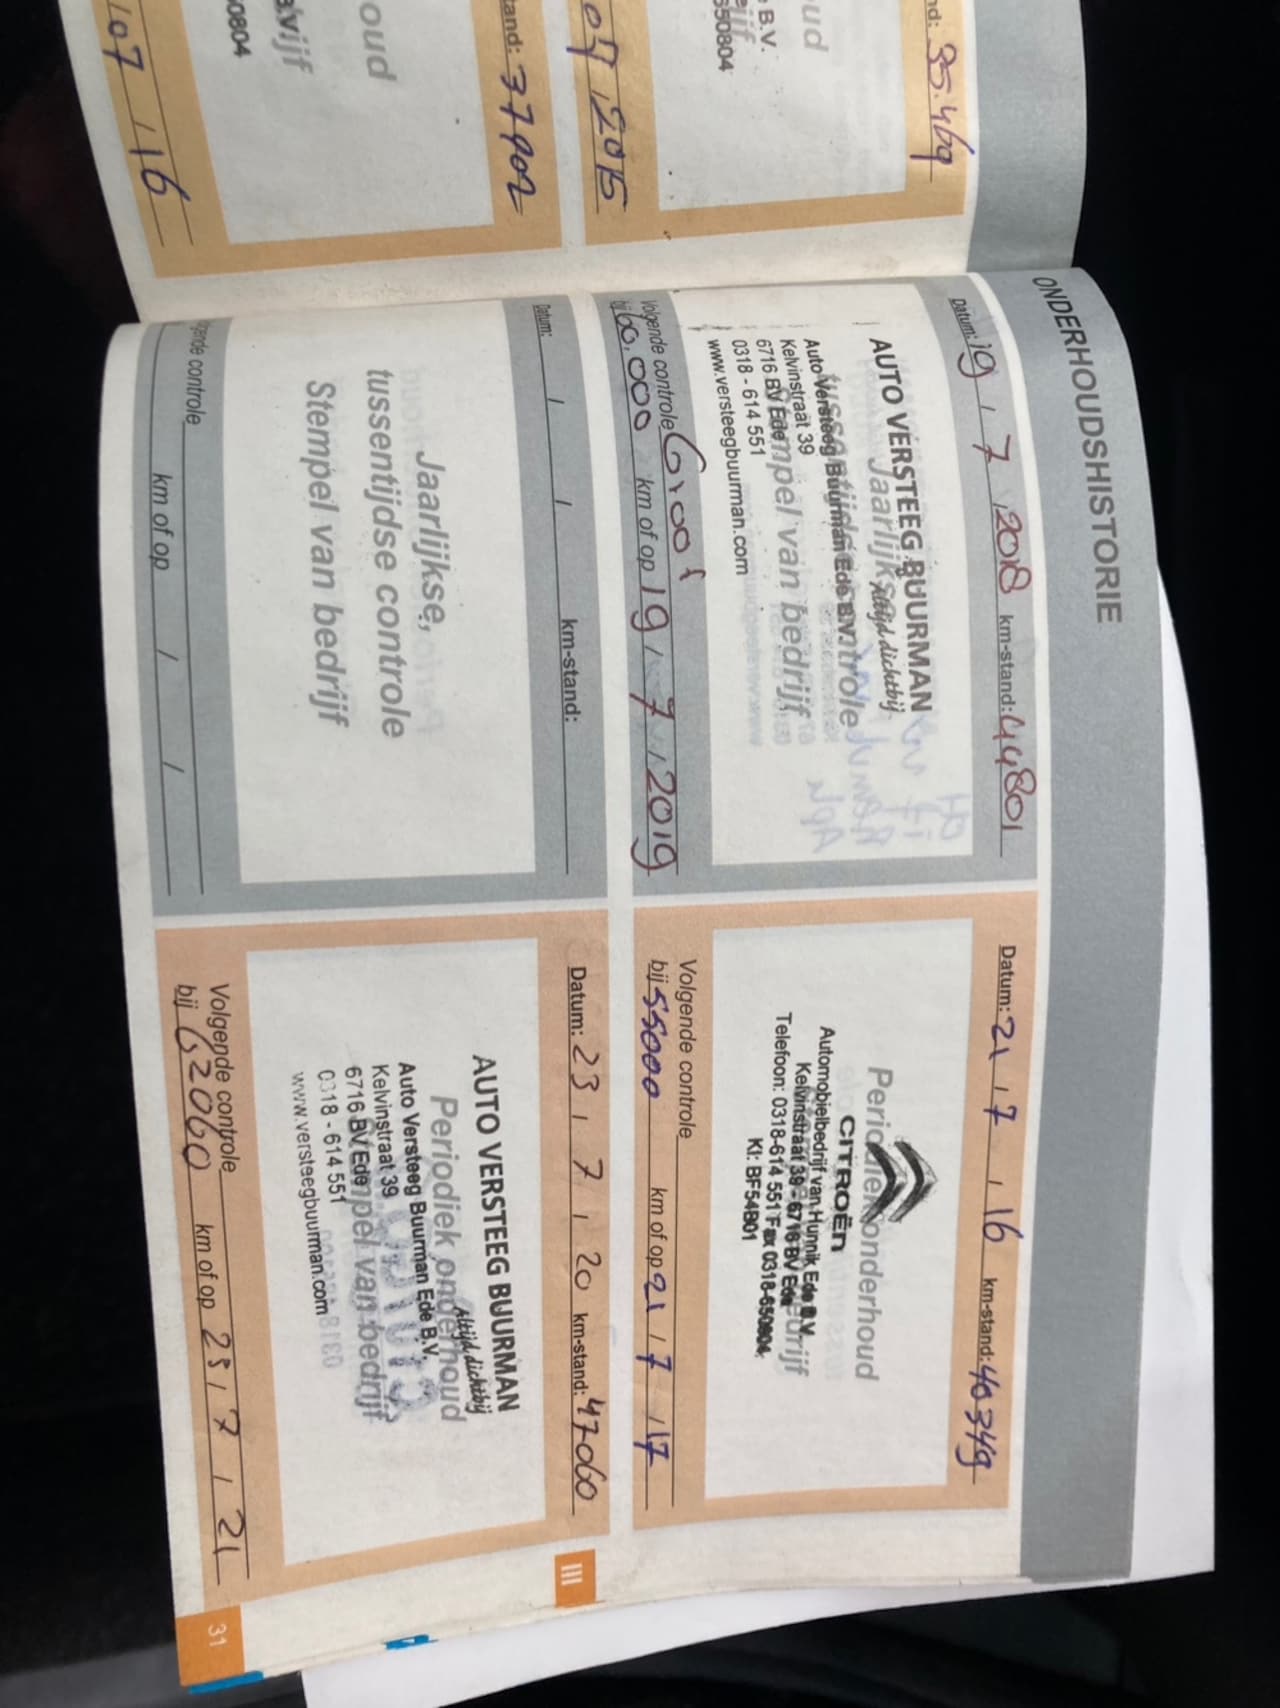 nd: 35.469
oud
B.V.
650804
tand: 37902
07 / 2015
oud
50804
107 / 16
ONDERHOUDSHISTORIE
Datum: 19 / 7 / 2018 km-stand: 44801
AUTO VERSTEEG BUURMAN
Altijd dichtbij
Jaarlijkse,
tussentijdse controle
Stempel van bedrijf
Auto Versteeg Buurman Ede B.V.
Kelvinstraat 39
6716 BV Ede
0318 - 614 551
www.versteegbuurman.com
Volgende controle
bij 60.000 km of op 19 / 7 / 2019
Datum: 21 / 7 / 16 km-stand: 40349
Periodiek onderhoud
CITROËN
Automobielbedrijf van Hunnik Ede B.V.
Kelvinstraat 39 - 6716 BV Ede
Telefoon: 0318-614 551 Fax 0318-650804
KI: BF54B01
Volgende controle
bij 55000 km of op 21 / 7 / 17
Datum: / / km-stand:
Jaarlijkse,
tussentijdse controle
Stempel van bedrijf
gende controle
km of op / /
Datum: 23 / 7 / 20 km-stand: 47060
AUTO VERSTEEG BUURMAN
Altijd dichtbij
Periodiek onderhoud
Stempel van bedrijf
Auto Versteeg Buurman Ede B.V.
Kelvinstraat 39
6716 BV Ede
0318 - 614 551
www.versteegbuurman.com
Volgende controle
bij 62060 km of op 23 / 7 / 21
III
31